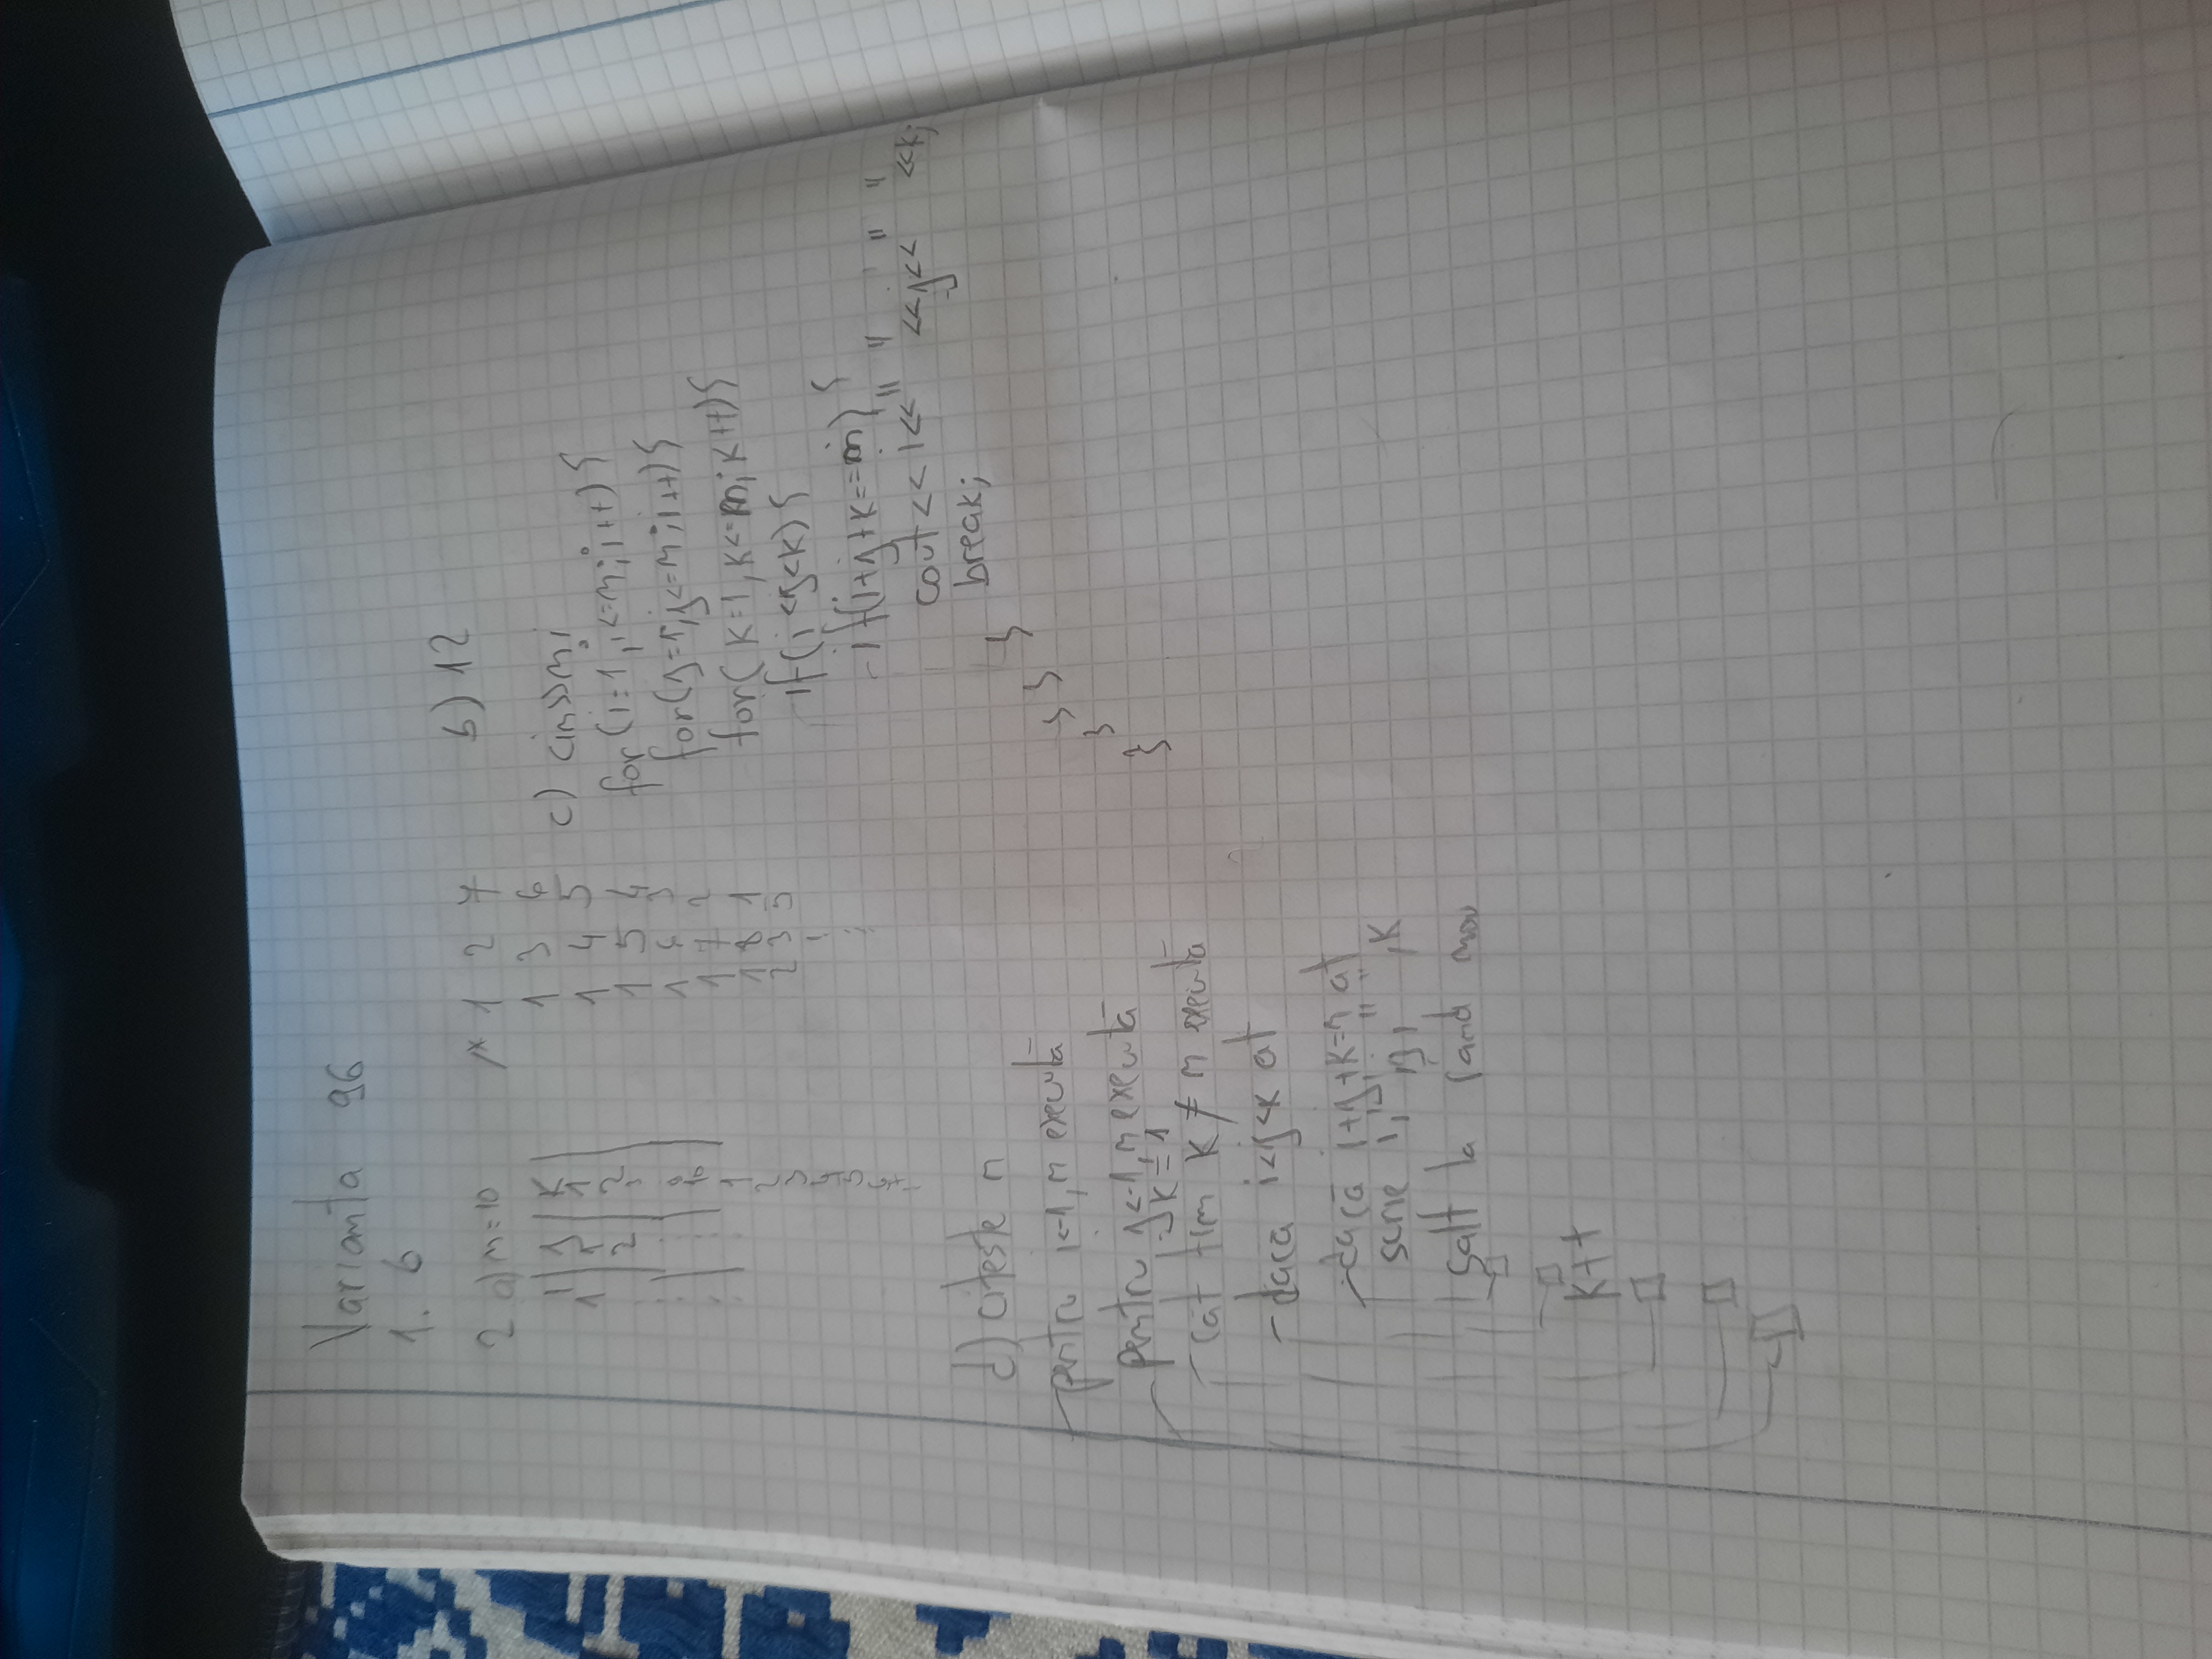 Varianta 96
1. b
2 a) n=10
i j k
1 1 1
2 2
3
1 2 7
1 3 6
1 4 5
1 5 4
1 6 3
1 7 2
1 8 1
2 3 5
b) 12
c) cin>>n;
for(i=1,i<=n;i++){
for(j=1,j<=n;i++){
for(k=1,k<=n;k++){
if(i<j<k){
if(i+j+k==n){
cout<<i<<" "<<j<<" "<<k;
break;
}
} }
}
}
d) citeste n
pentru i<-1,n execută
pentru j<-1,n execută
k=1
cat timp k≠n execută
daca i<j<k at
dacă i+j+k=n at
scrie i," ",j," ",k
salt la rand nou
k++